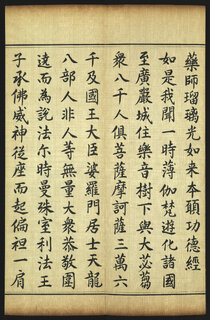 藥師瑠璃光如来本願功德經
如是我聞一時薄伽梵遊化諸國
至廣嚴城住樂音樹下與大苾蒭
衆八千人俱菩薩摩訶薩三萬六
千及國王大臣婆羅門居士天龍
八部人非人等無量大衆恭敬圍
遶而為說法尔時曼殊室利法王
子承佛威神從座而起偏袒一肩